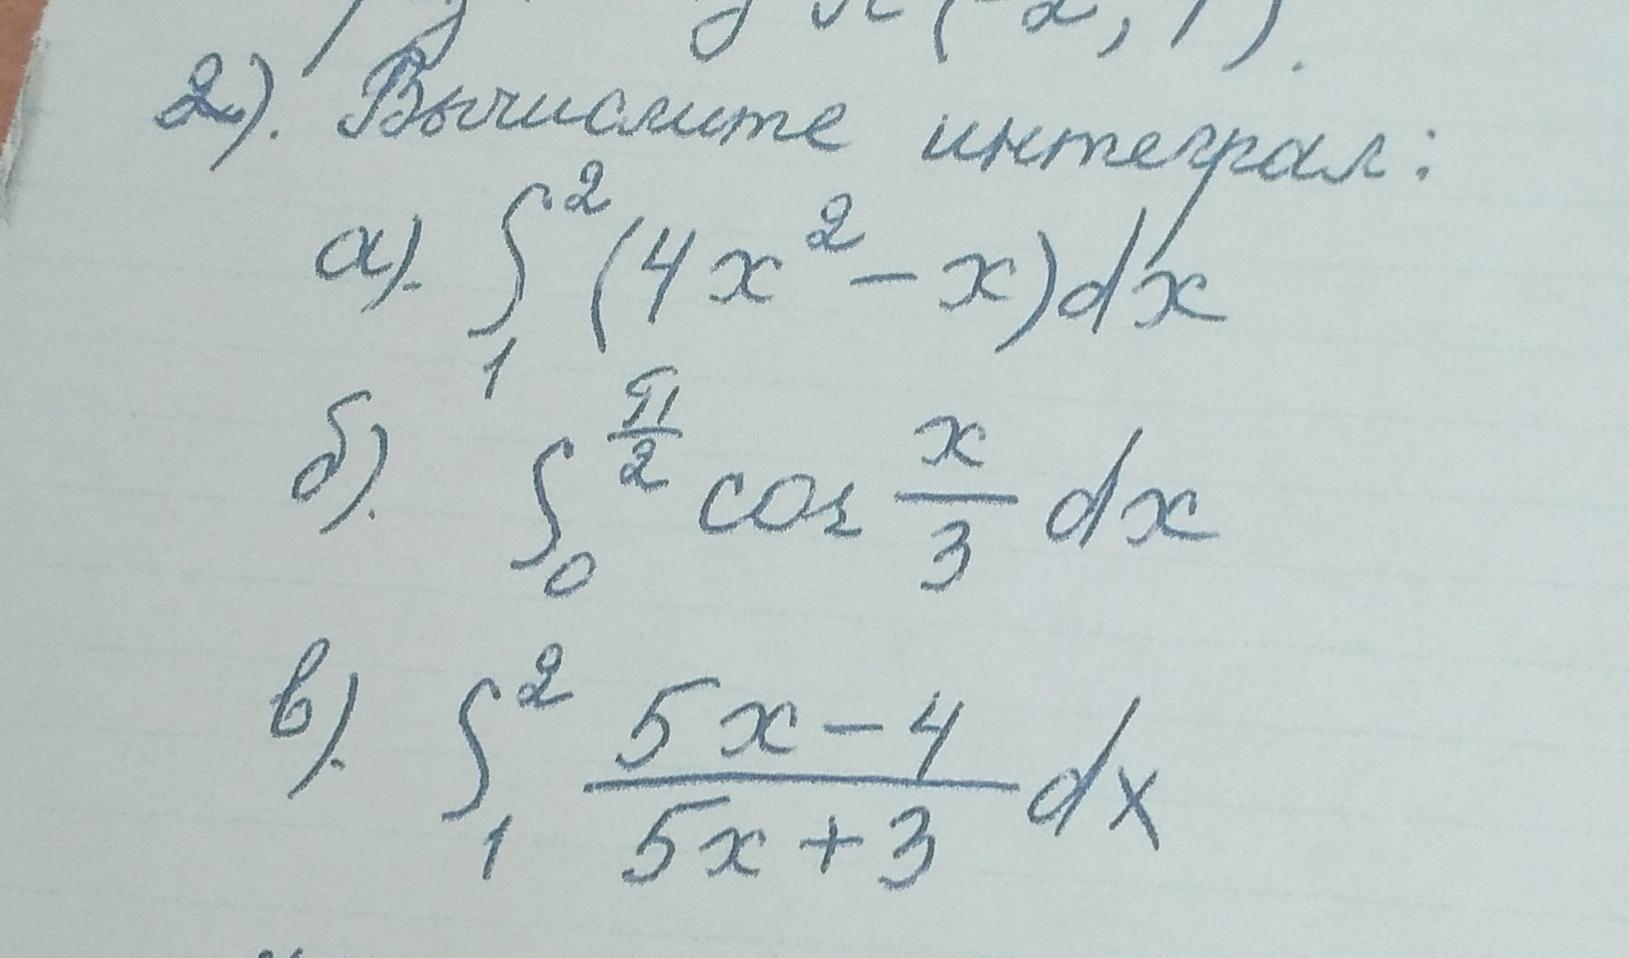 2). Вычислите интеграл:
а). ∫₁² (4x² - x)dx
б). ∫₀^(π/2) cos x/3 dx
в). ∫₁² (5x - 4)/(5x + 3) dx